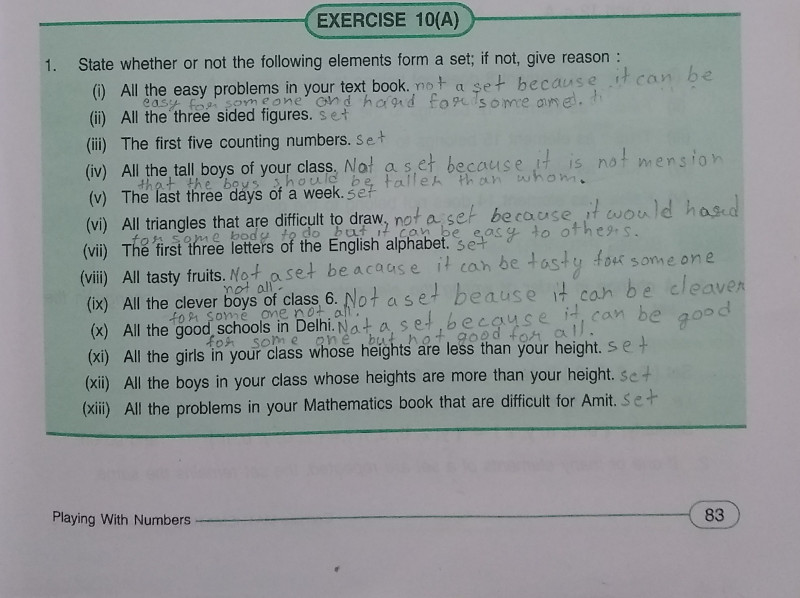 EXERCISE 10(A)
1. State whether or not the following elements form a set; if not, give reason :
(i) All the easy problems in your text book. not a set because it can be
easy for someone and hard for some one.
(ii) All the three sided figures. set
(iii) The first five counting numbers. set
(iv) All the tall boys of your class. Not a set because it is not mension
that the boys should be taller than whom.
(v) The last three days of a week. set
(vi) All triangles that are difficult to draw, not a set because it would hard
for some body to do but it can be easy to others.
(vii) The first three letters of the English alphabet. set
(viii) All tasty fruits. Not a set beacause it can be tasty for some one
not all.
(ix) All the clever boys of class 6. Not a set beause it can be cleaver
for some one not all.
(x) All the good schools in Delhi. Not a set, because it can be good
for some one but not good for all.
(xi) All the girls in your class whose heights are less than your height. set
(xii) All the boys in your class whose heights are more than your height. set
(xiii) All the problems in your Mathematics book that are difficult for Amit. set
Playing With Numbers 83